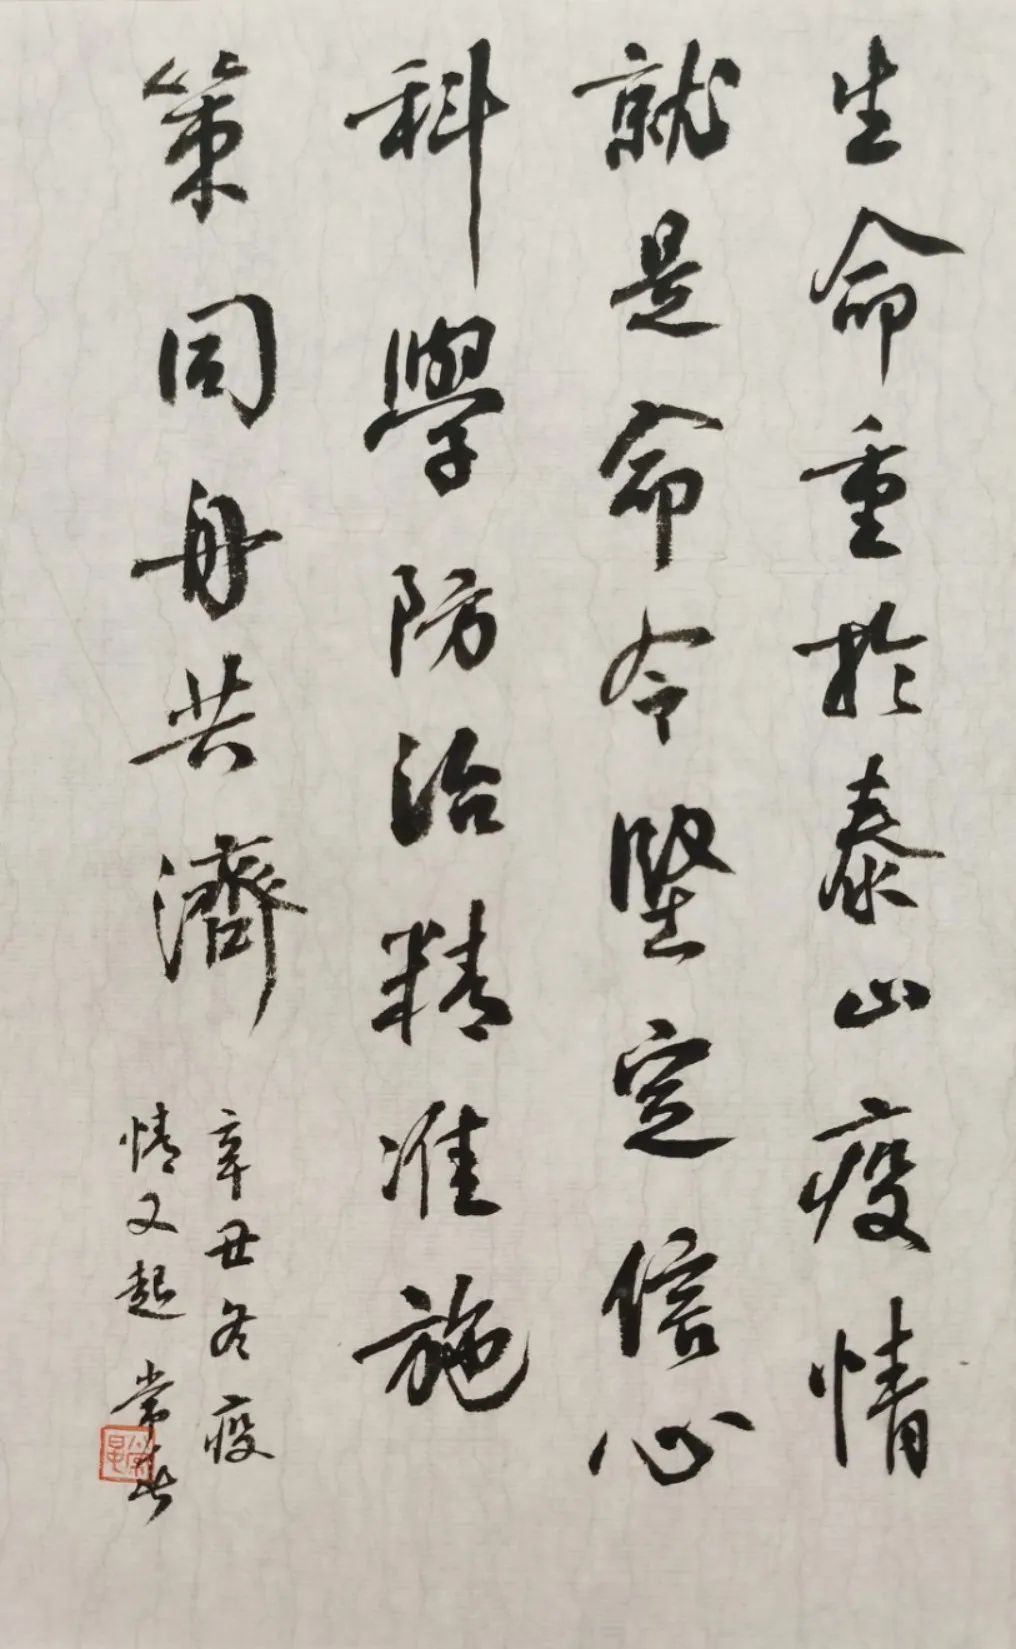 生命重於泰山疫情
就是命令堅定信心
科學防治精准施
策同舟共濟
辛丑冬疫
情又起 常春